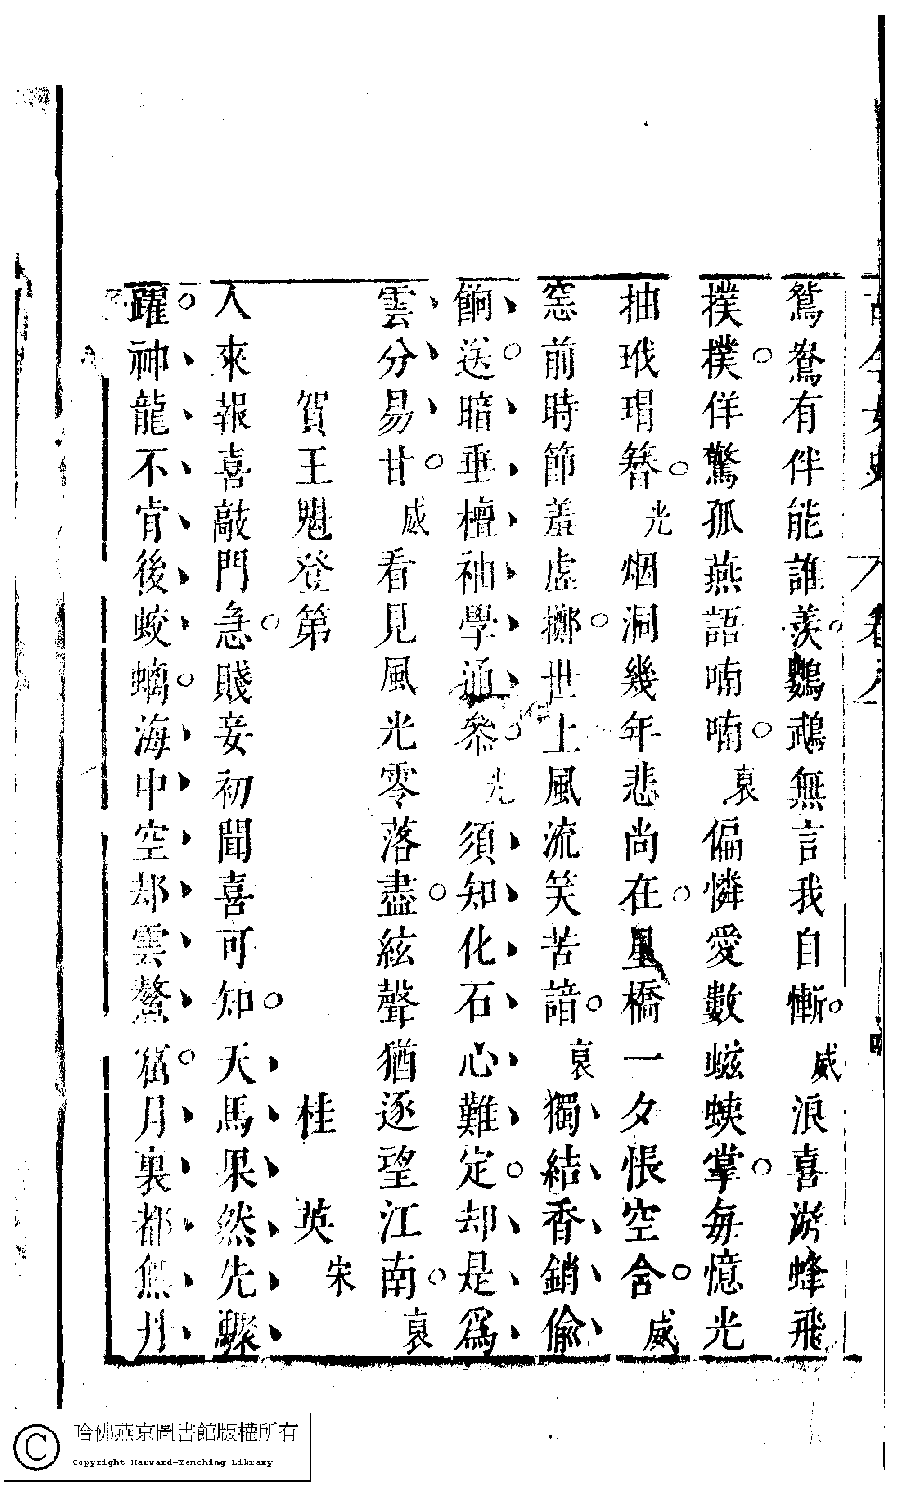 古今女史　卷
鴛鴦有伴能誰羨鸚鵡無言我自慚威浪喜游蜂飛
撲撲佯驚孤燕語喃喃裒偏憐愛數蚿蛺掌每憶光
抽玳瑁簪光烟洞幾年悲尚在星橋一夕悵空含威
窓前時節羞虛擲世上風流笑苦諳裒獨結香銷偷
餉送暗垂檀袖學通參光須知化石心難定却是爲
雲分易甘威看見風光零落盡絃聲猶逐望江南裒
賀王魁登第　桂英　宋
人來報喜敲門急賤妾初聞喜可知天馬果然先驟
躍神龍不肯後蛟螭海中空却雲鰲窟月裏都無丹
哈佛燕京圖書館版權所有
Copyright Harvard-Yenching Library